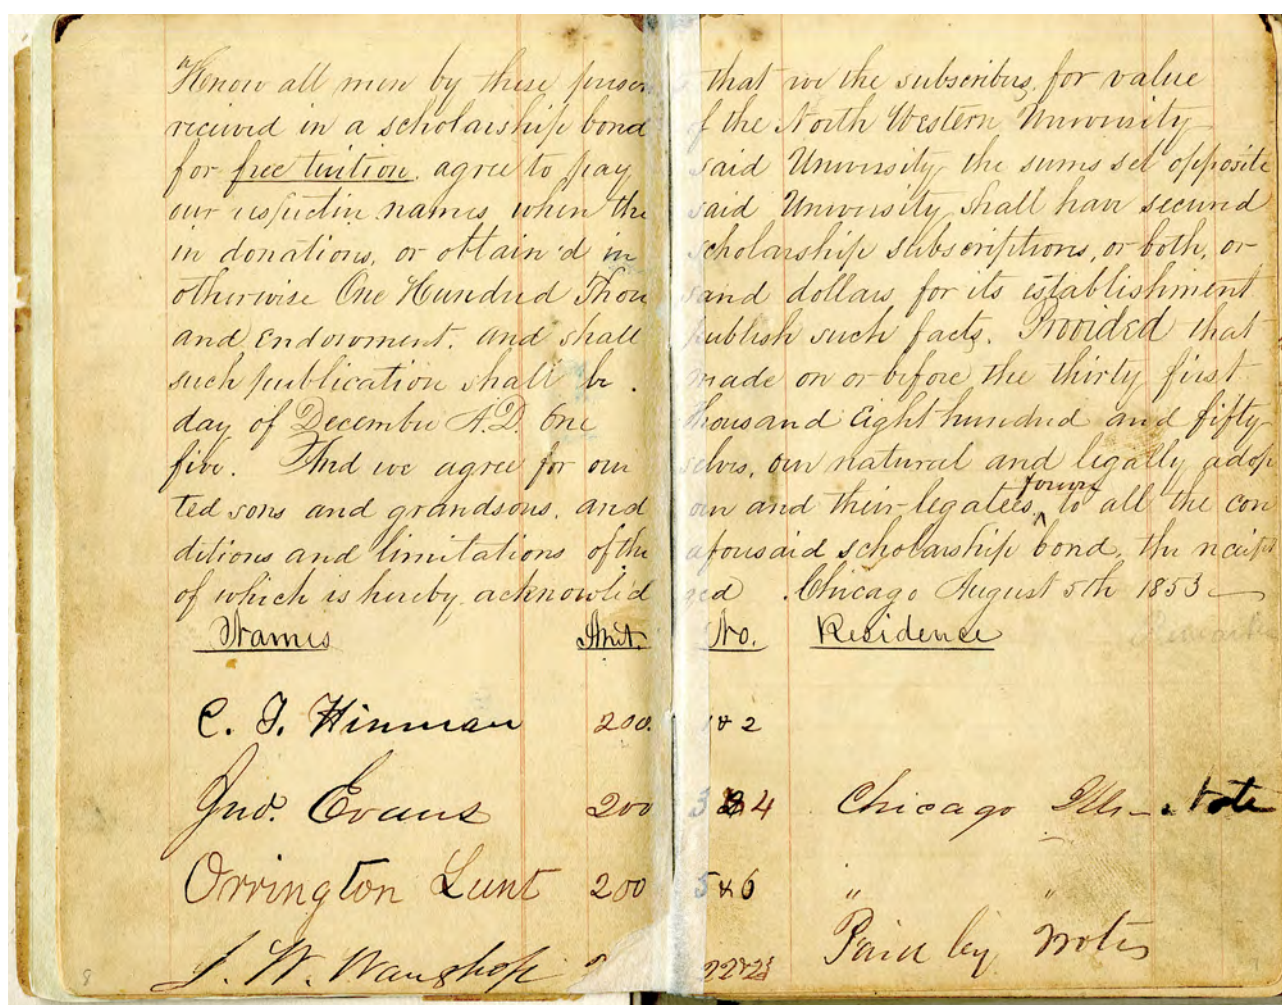 Know all men by these presen that we the subscribers, for value
received in a scholarship bond of the North Western University
for free tuition, agree to pay said University the sums set opposite
our respective names, when the said University shall have secured
in donations, or obtain'd in scholarship subscriptions, or both, or
otherwise One Hundred Thousand dollars for its establishment
and Endowment, and shall publish such facts. Provided that
such publication shall be made on or before the thirty first
day of December A.D. One thousand Eight hundred and fifty
five. And we agree for ourselves, our natural and legally adop
ted sons and grandsons, and our and their legatees, to all the con
ditions and limitations of the aforesaid scholarship bond, the receipt
of which is hereby acknowled ged. Chicago August 5th 1853
Names Amt. No. Residence
C. T. Hinman 200. 1 & 2
Jno. Evans 200 3 & 4 Chicago Ills - Note
Orrington Lunt 200 5 & 6 " "
J. W. Waughop 22 & 23 Paid by Notes
8